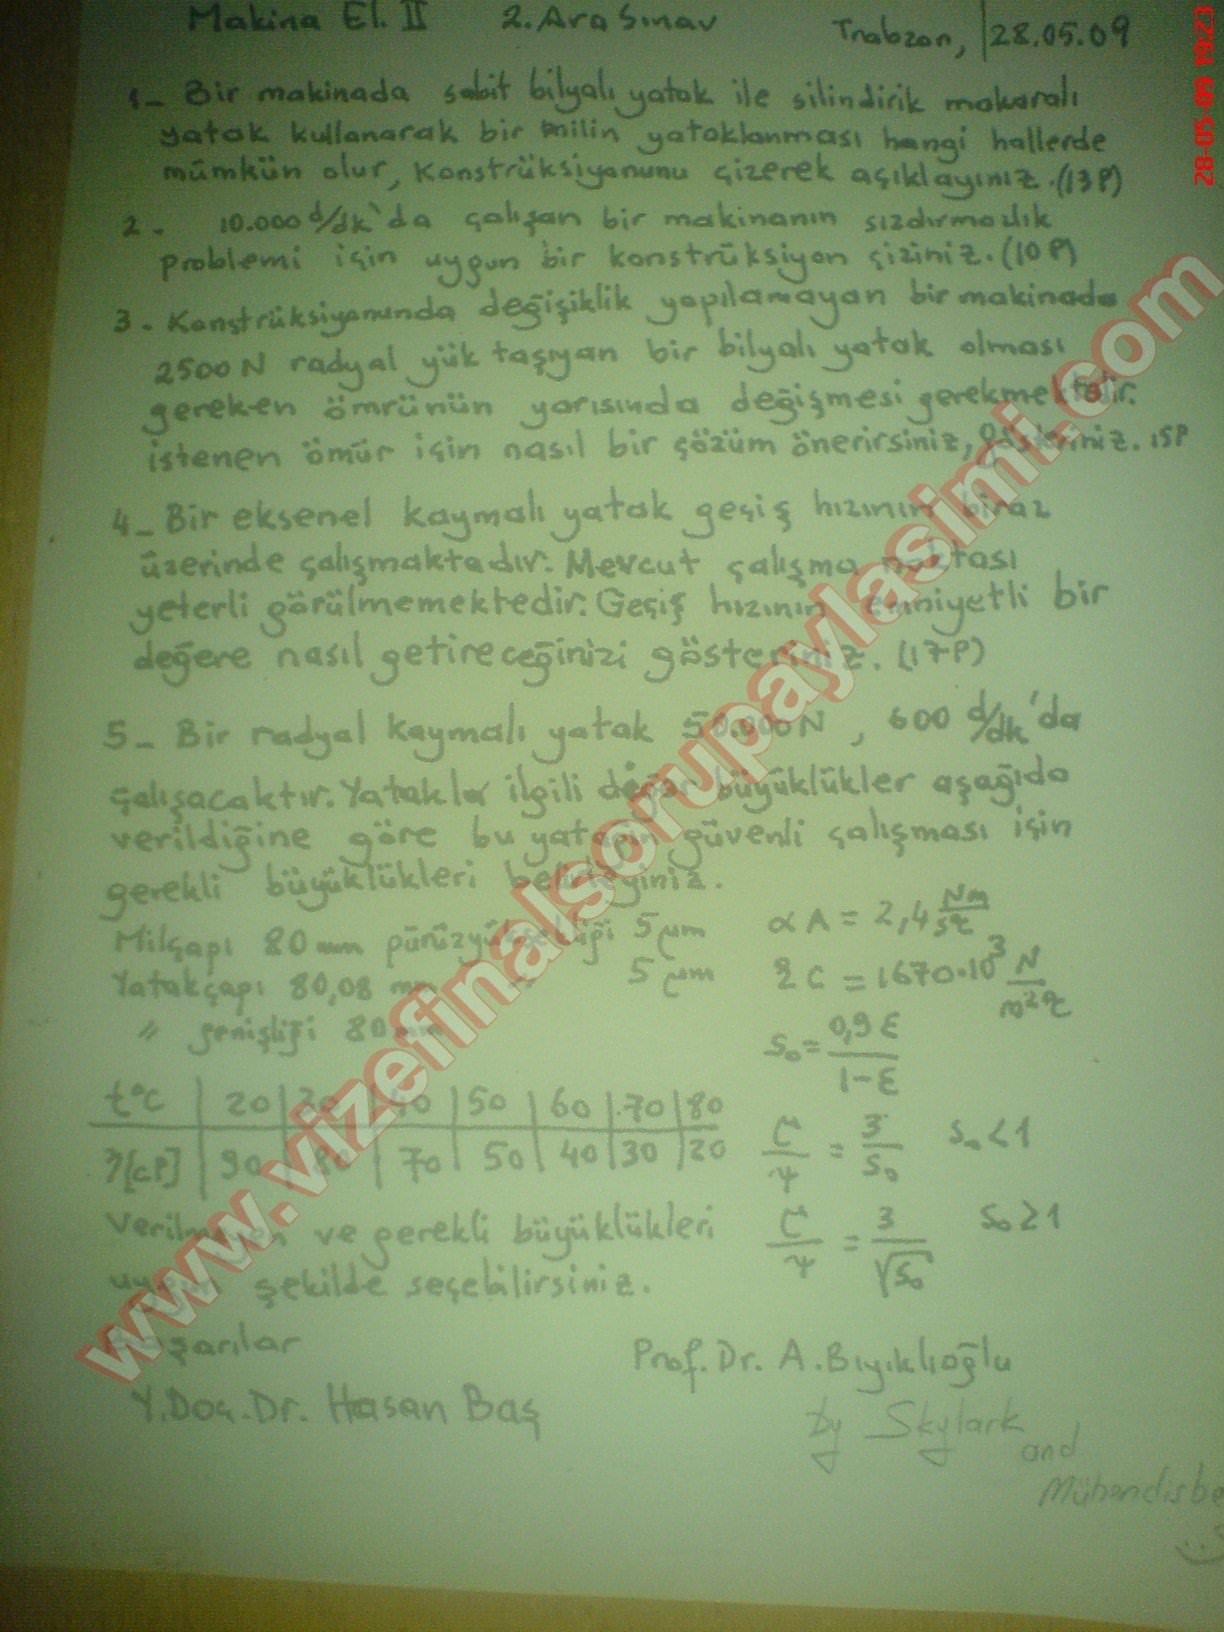 Makina El. II 2. Ara Sınav Trabzon, 28.05.09
28-05-09 19:23
1- Bir makinada sabit bilyalı yatak ile silindirik makaralı
yatak kullanarak bir milin yataklanması hangi hallerde
mümkün olur, Konstrüksiyonunu çizerek açıklayınız.(13P)
2- 10.000 d/dk'da çalışan bir makinanın sızdırmazlık
problemi için uygun bir konstrüksiyon çiziniz.(10P)
3- Konstrüksiyonunda değişiklik yapılamayan bir makinada
2500N radyal yük taşıyan bir bilyalı yatak olması
gereken ömrünün yarısında değişmesi gerekmektedir.
istenen ömür için nasıl bir çözüm önerirsiniz, gösteriniz. 15P
4- Bir eksenel kaymalı yatak geçiş hızının biraz
üzerinde çalışmaktadır. Mevcut çalışma noktası
yeterli görülmemektedir. Geçiş hızının emniyetli bir
değere nasıl getireceğinizi gösteriniz. (17P)
5- Bir radyal kaymalı yatak 50.000N, 600 d/dk'da
çalışacaktır. Yatakla ilgili değer büyüklükler aşağıda
verildiğine göre bu yatağın güvenli çalışması için
gerekli büyüklükleri belirleyiniz.
Milçapı 80 mm pürüzyüksekliği 5 µm αA = 2,4 Nm/s°C
Yatakçapı 80,08 mm " 5 µm ρc = 1670·10³ N/m²°C
" genişliği 80mm
So = 0,9ε/1-ε
t°C | 20 | 30 | 40 | 50 | 60 | 70 | 80
η[cP] | 90 | 80 | 70 | 50 | 40 | 30 | 20
µ/ψ = 3/So So<1
Verilmeyen ve gerekli büyüklükleri µ/ψ = 3/√So So≥1
uygun şekilde seçebilirsiniz.
Başarılar
Prof. Dr. A. Bıyıklıoğlu
Y.Doç.Dr. Hasan Baş
by Skylark
and
Mühendisbe
www.vizefinalsorupaylasimi.com